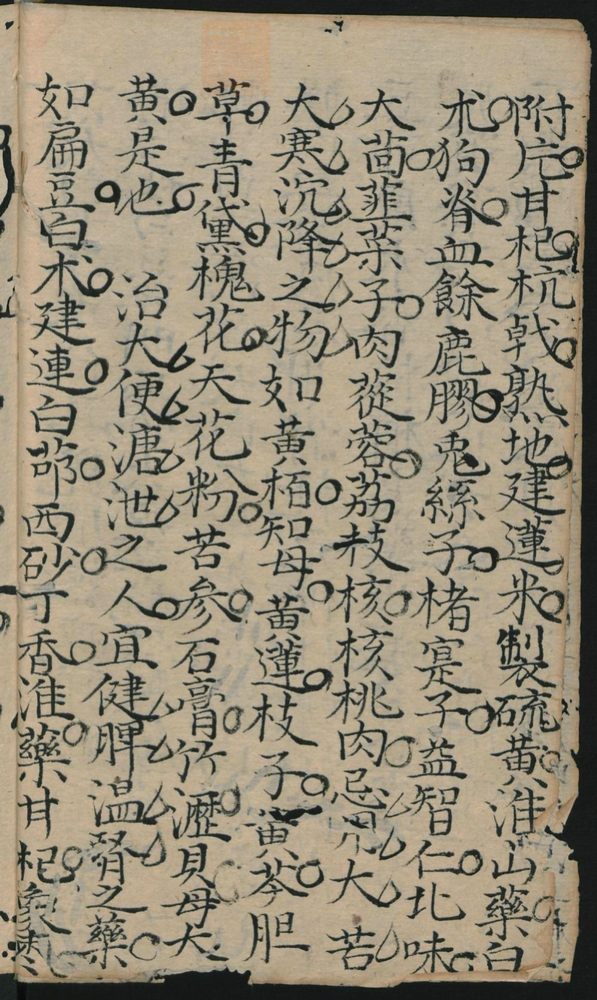 附片甘杞杭戟熟地建蓮米製硫黄淮山藥白
朮狗脊血餘鹿膠兎絲子楮寔子益智仁北味
大茴韮菜子肉蓯蓉荔枝核核桃肉忌用大苦
大寒沉降之物如黄栢知母黄蓮枝子黄芩胆
草青黛槐花天花粉苦参石膏竹瀝貝母大
黄是也 治大便溏泄之人宜健脾温腎之藥
如扁豆白术建連白茆西砂丁香淮藥甘杞